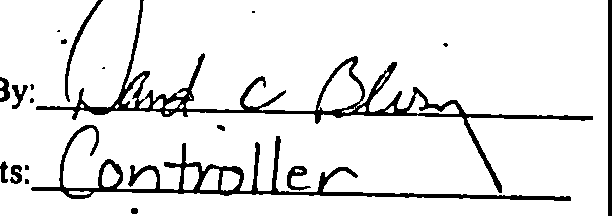 By: David C
ts: Controller